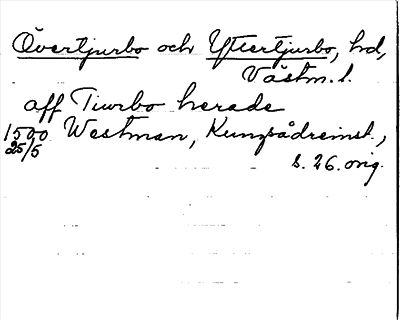 Övertjurbo och Yttertjurbo, hd,
Västm. l.
aff Tiurbo herade
1500 Westman, Kungsådreinst.,
25/5 s. 26. orig.